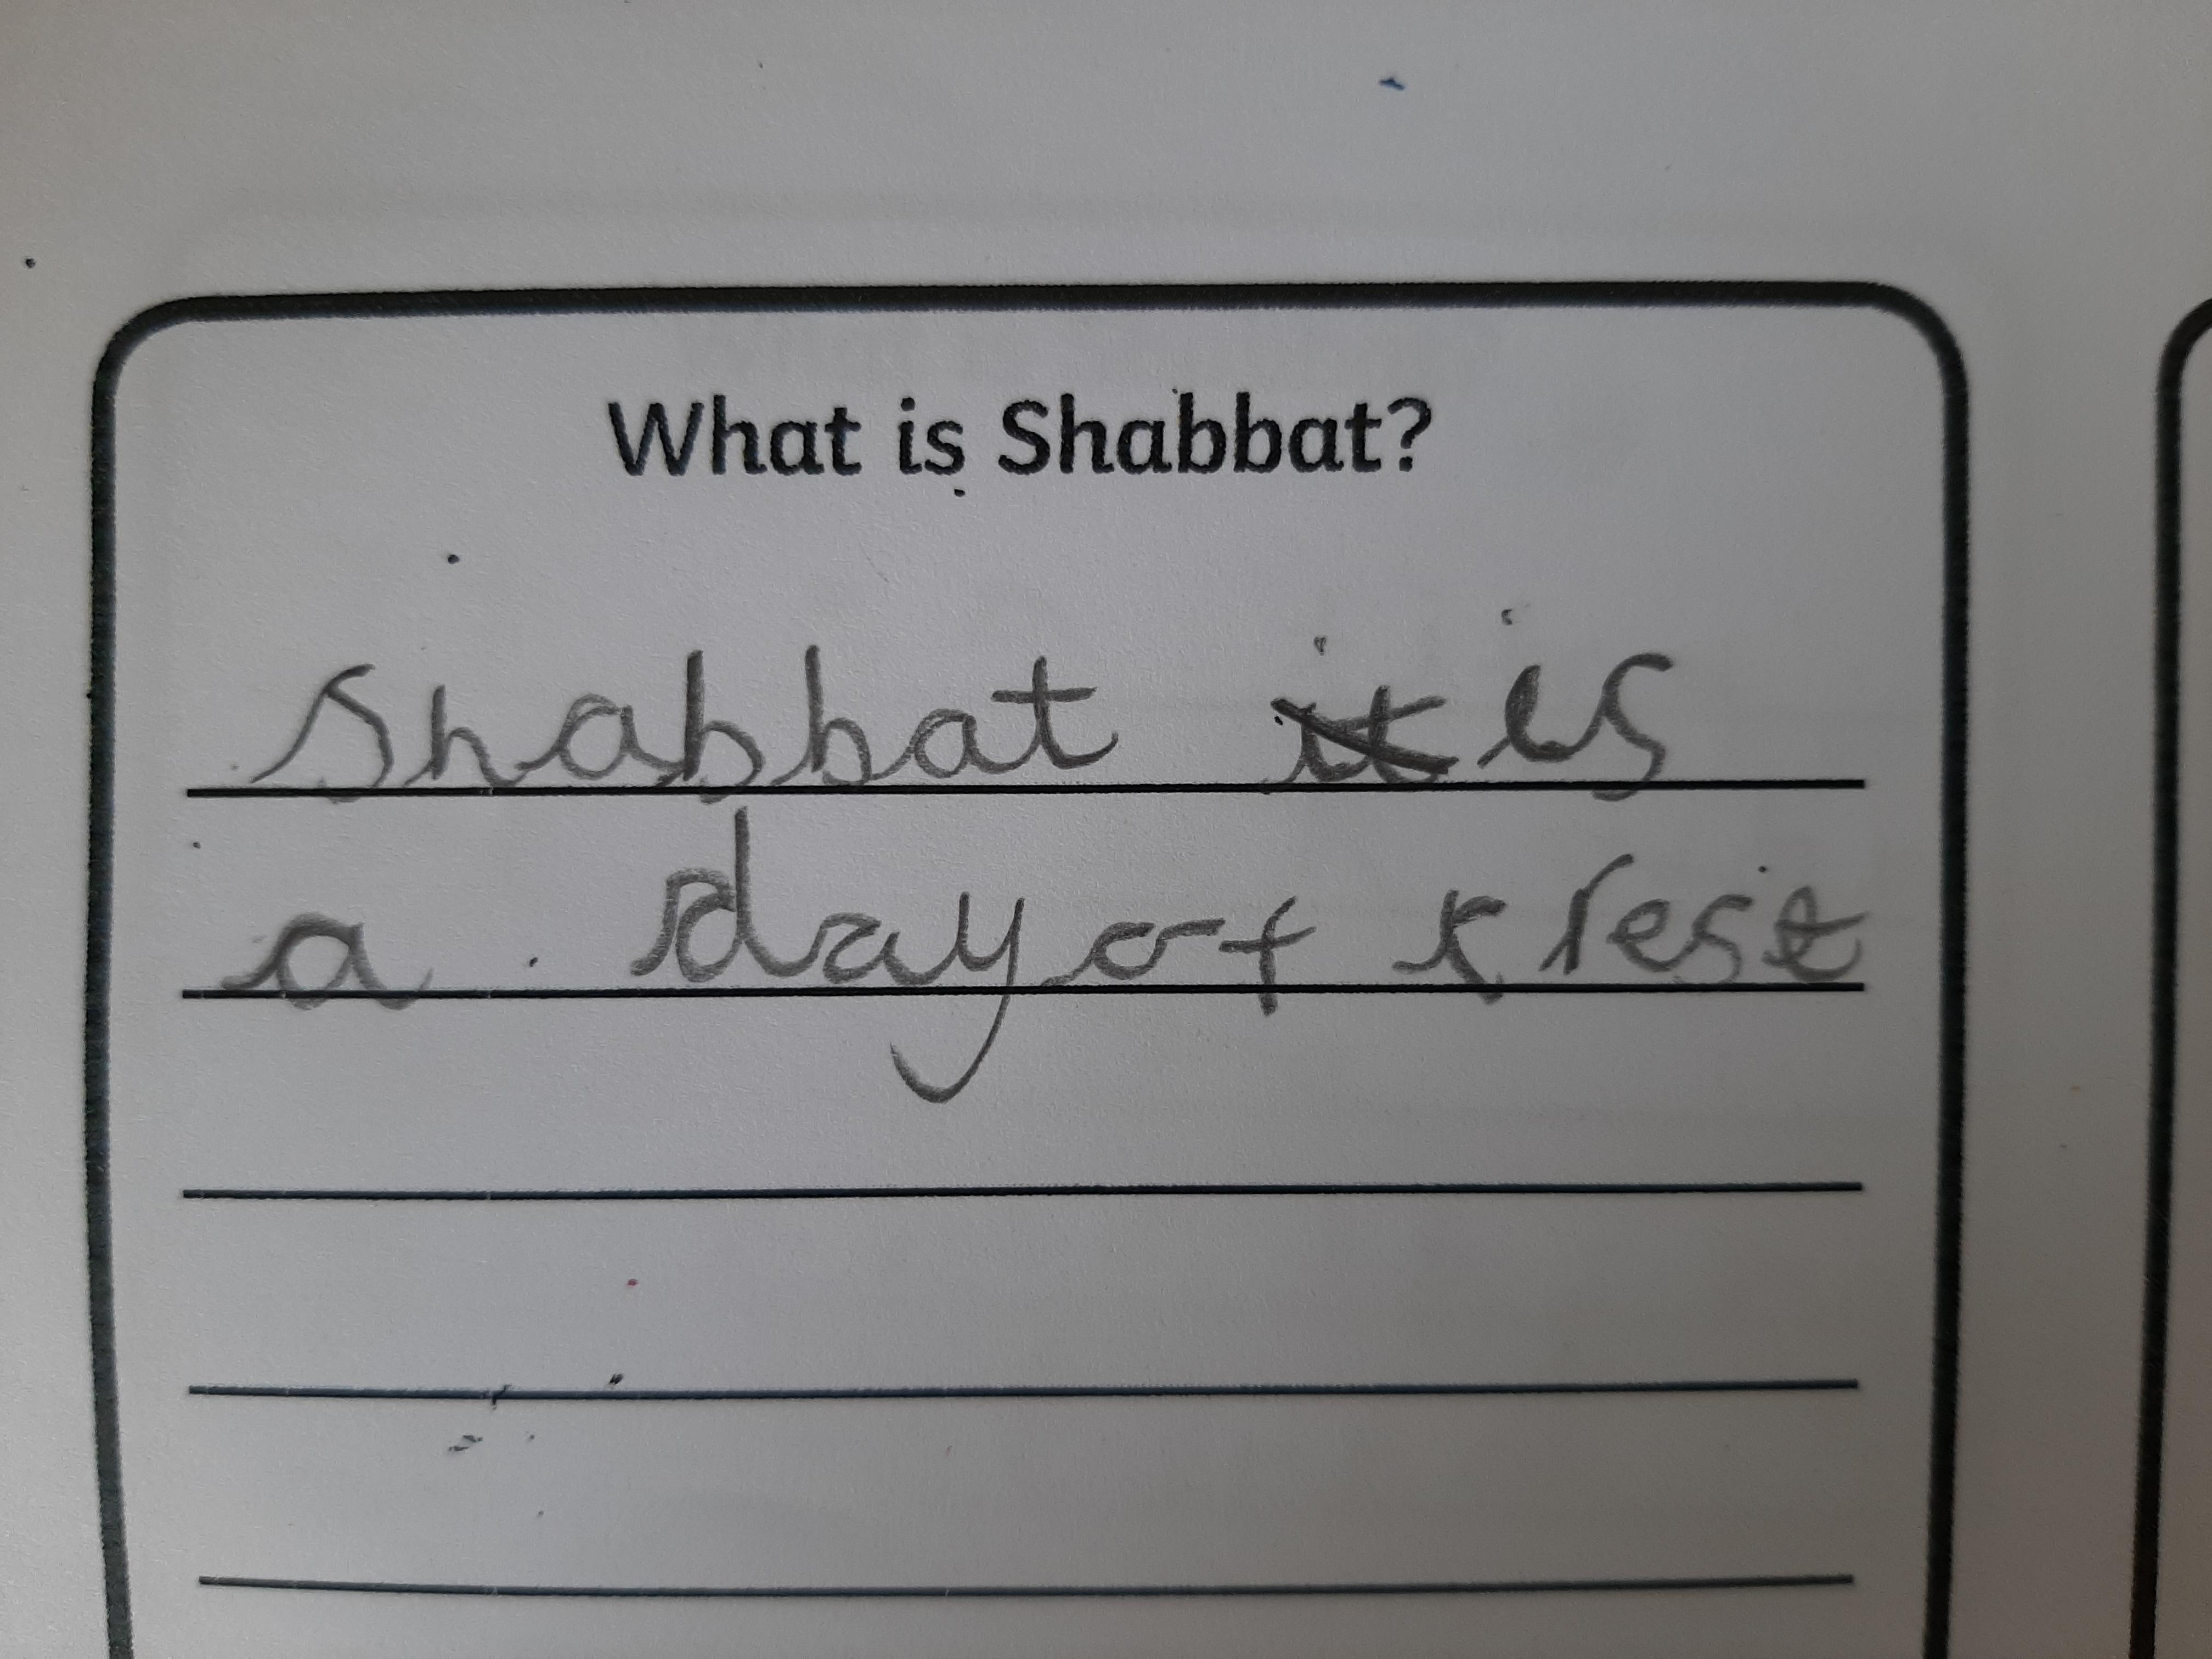 What is Shabbat?
Shabbat it is
a day of r rest